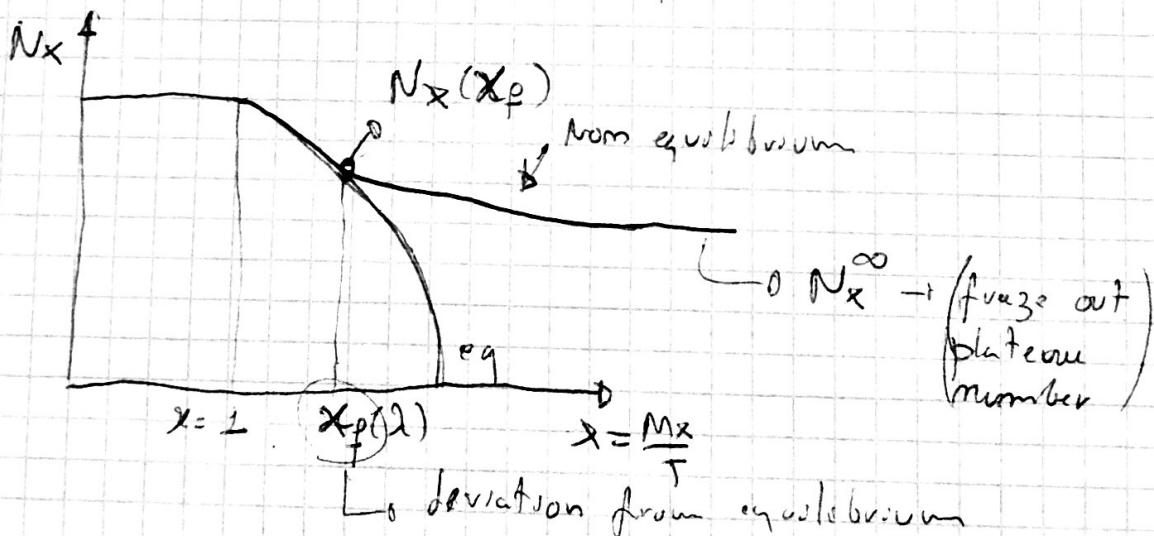 Nx
Nx(xf)
Non equilibrium
Nx∞ → (freeze out
plateau
number)
eq
x=1
xf(λ)
x = Mx/T
deviation from equilibrium